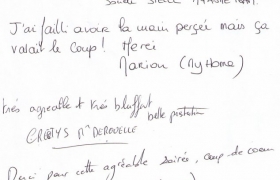 J'ai failli avoir la main percée mais ça
valait le coup ! Merci
Marion (MyHome)
très agréable & très bluffant
belle prestation
Merci pour cette agréable soirée, coup de coeur